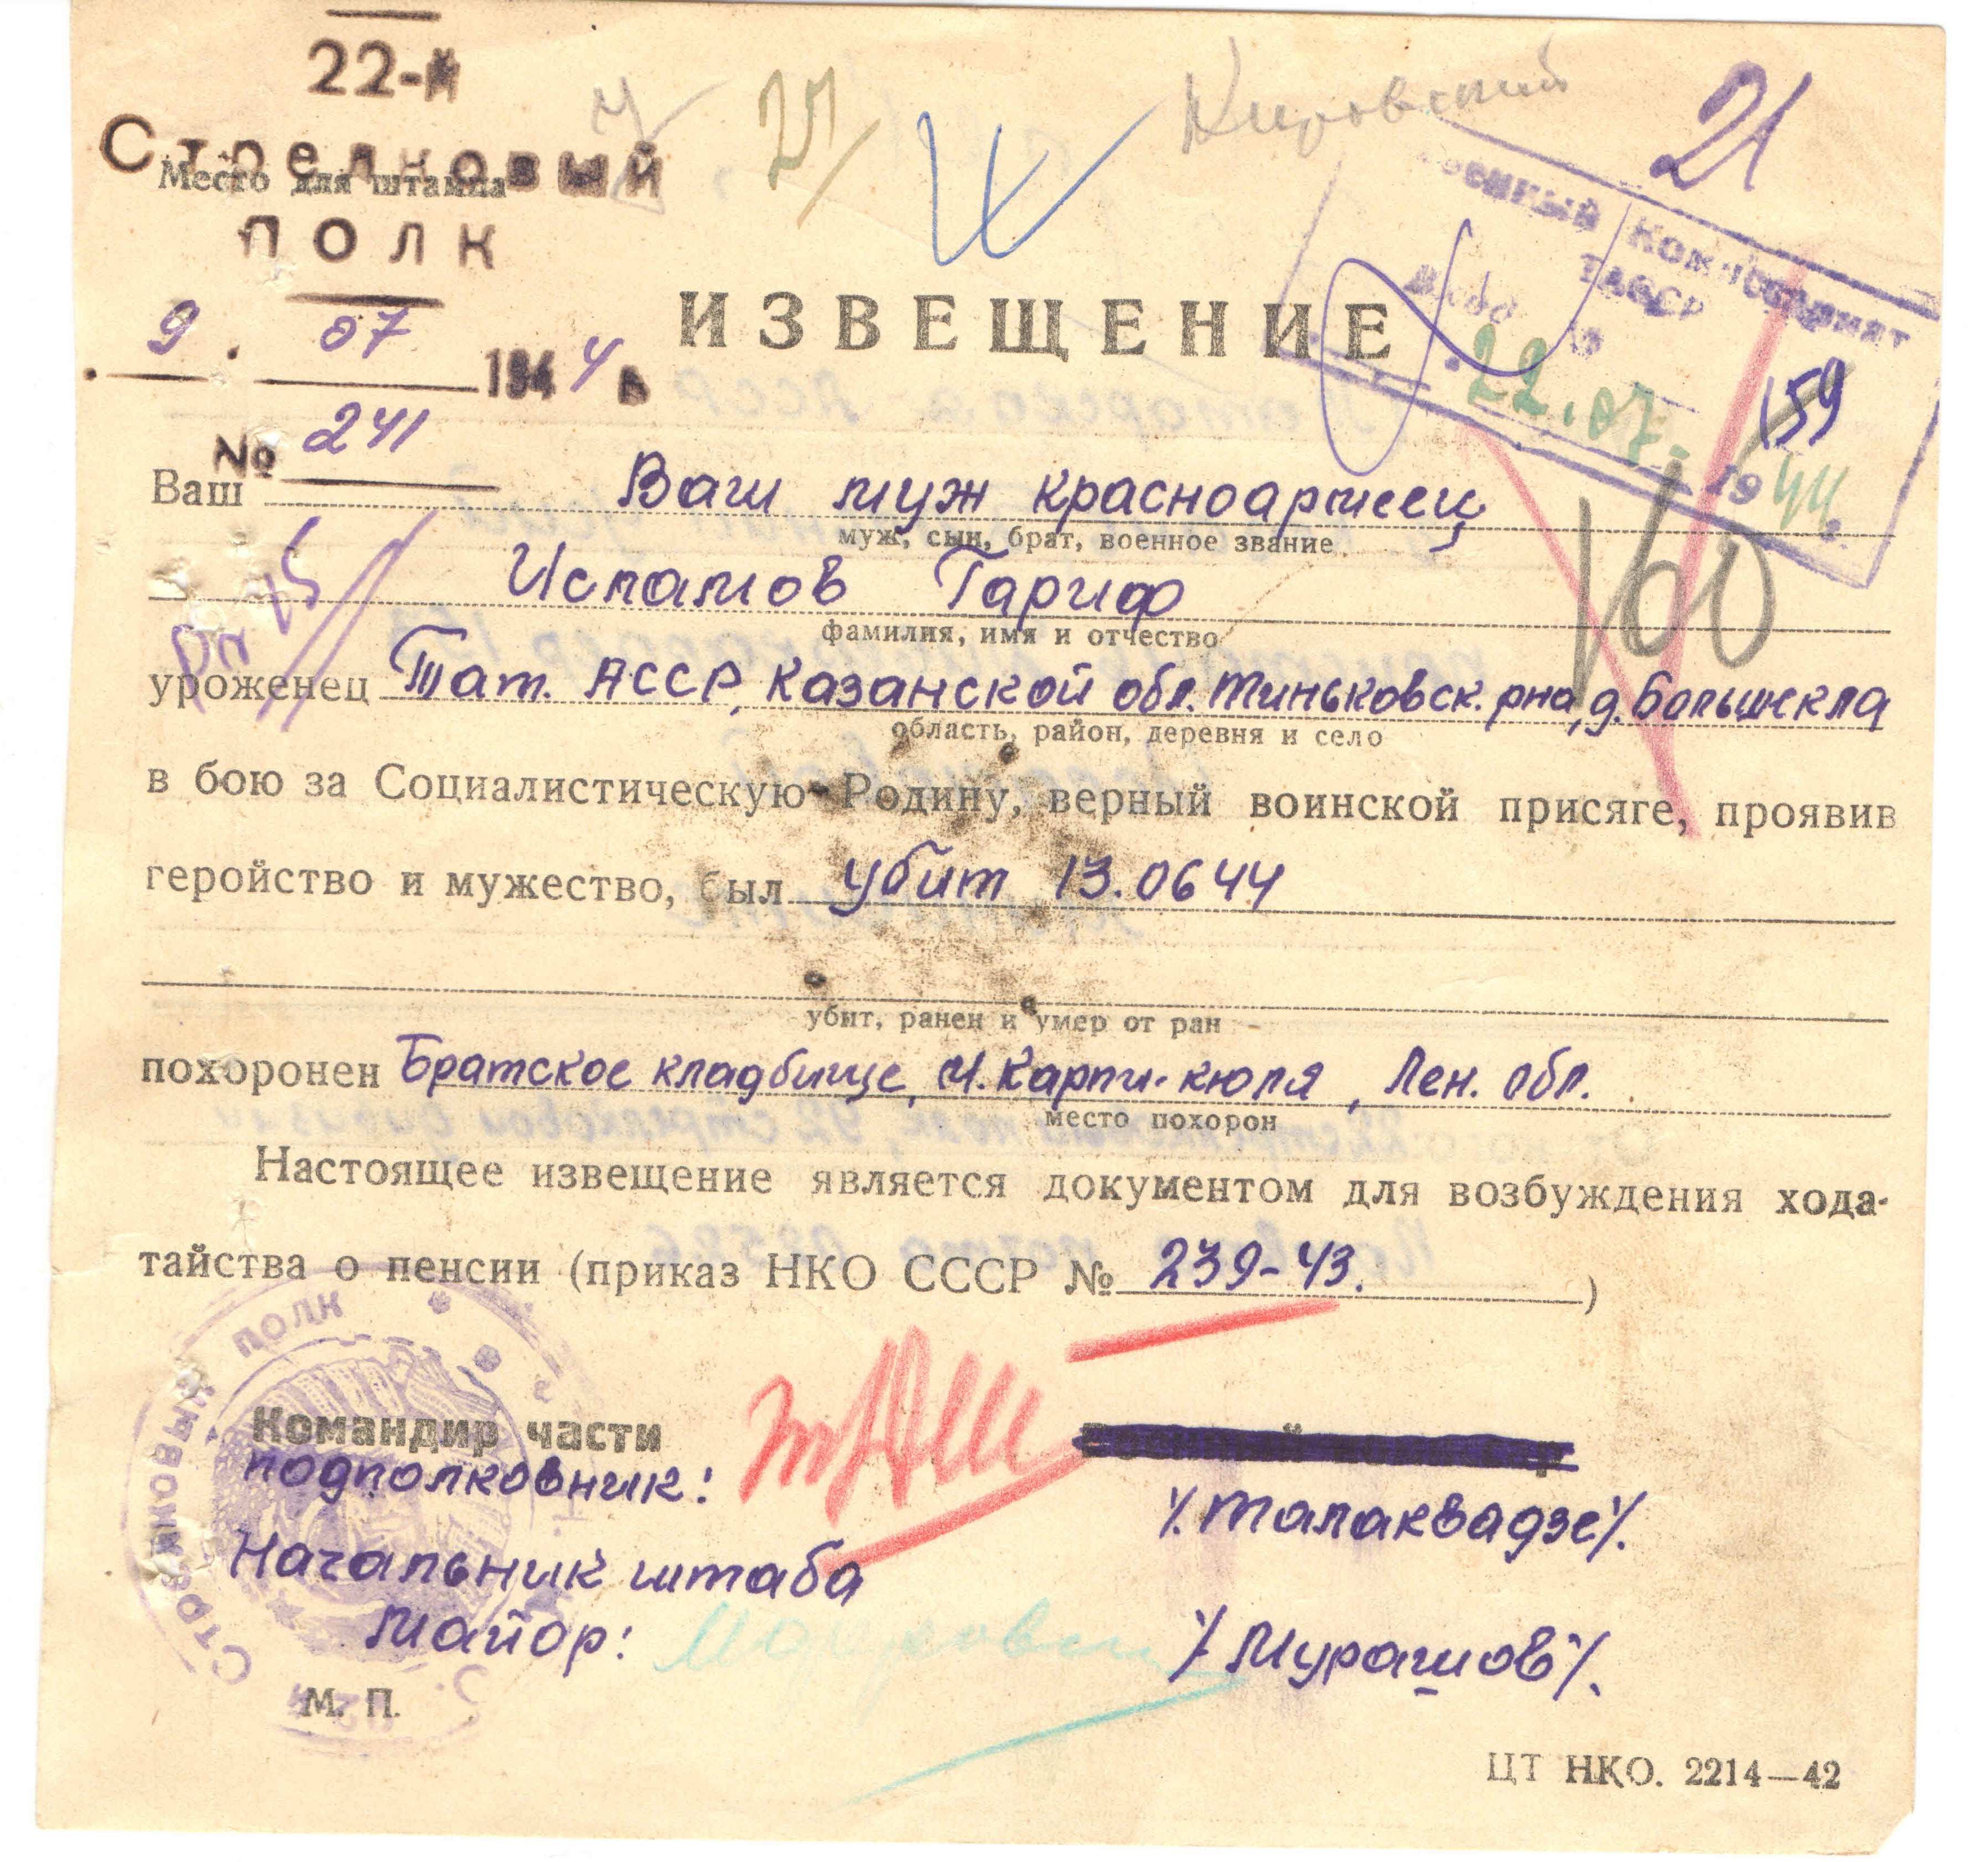 22-й
Стрелковый
Место для штампа
полк
9. 07 1944 г.
№ 241
21/
Кировский
21
Военный Комиссариат
ТАССР
22.07. 1944 г.
159
160
ИЗВЕЩЕНИЕ
Ваш Ваш муж красноармеец
муж, сын, брат, военное звание
Исламов Гариф
фамилия, имя и отчество
уроженец Тат. АССР, Казанской обл. Тиньковск. рна, д. Большекла
область, район, деревня и село
в бою за Социалистическую Родину, верный воинской присяге, проявив
геройство и мужество, был убит 13.06 44
убит, ранен и умер от ран
похоронен Братское кладбище, м. Карпи-кюля, Лен. обл.
место похорон
Настоящее извещение является документом для возбуждения хода-
тайства о пенсии (приказ НКО СССР № 239-43.)
Командир части
подполковник:
/Талаквадзе/.
Начальник штаба
Майор:
/Мурашов/.
Стрелковый полк
М. П.
ЦТ НКО. 2214—42